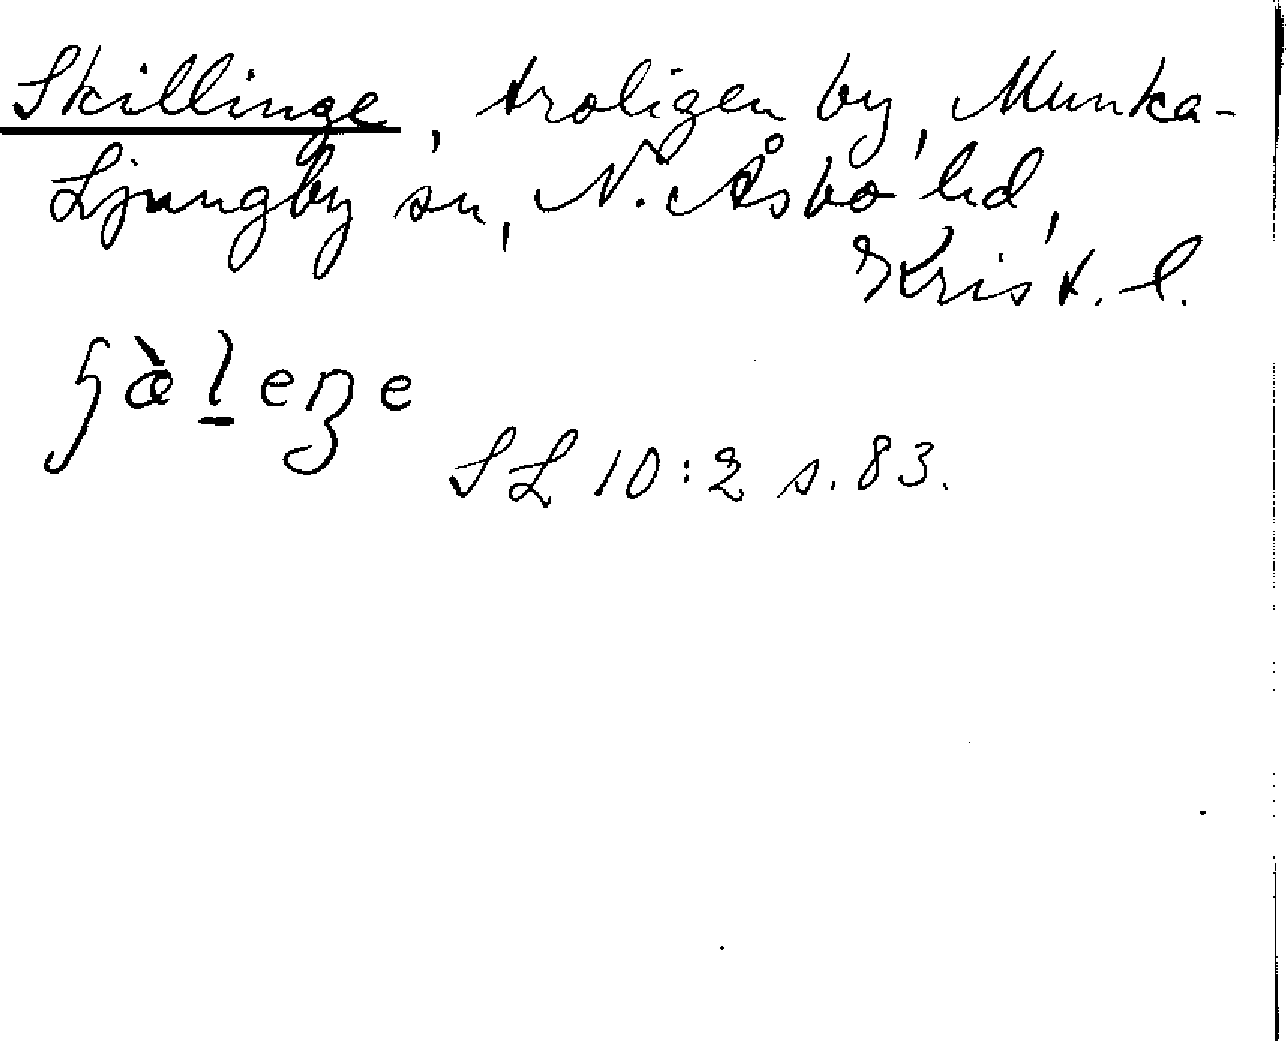 Skillinge, troligen by, Munka-
Ljungby sn, N. Åsbo hd,
Krist. l.
SL 10:2 s. 83.